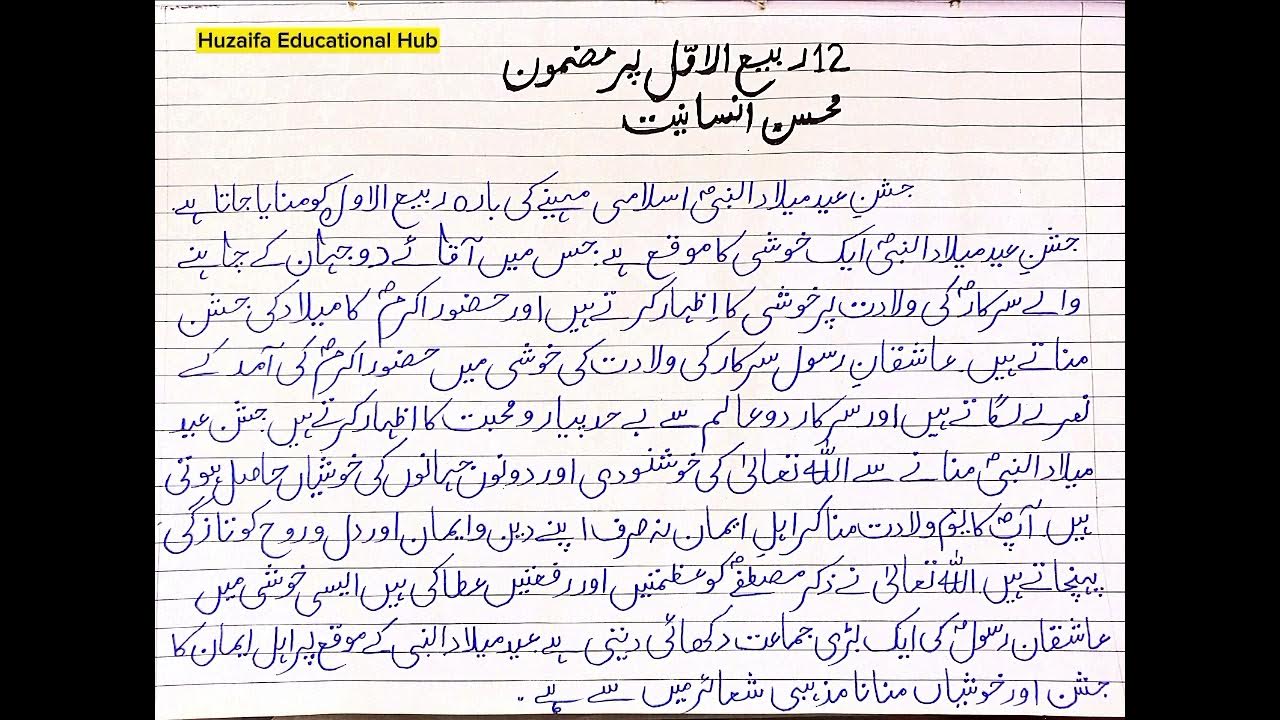 Huzaifa Educational Hub
12 ربیع الاوّل پر مضمون
محسنِ انسانیت
جشنِ عید میلاد النبیؐ اسلامی مہینے کی بارہ ربیع الاول کو منایا جاتا ہے۔
جشنِ عید میلاد النبیؐ ایک خوشی کا موقع ہے جس میں آقائے دو جہان کے چاہنے
والے سرکارؐ کی ولادت پر خوشی کا اِظہار کرتے ہیں اور حضور اکرمؐ کا میلاد کی جشن
مناتے ہیں۔ عاشقانِ رسول سرکار کی ولادت کی خوشی میں حضور اکرمؐ کی آمد کے
نعرے لگاتے ہیں اور سرکار دو عالم سے بے حد پیار و محبت کا اظہار کرتے ہیں جشن عید
میلاد النبیؐ منانے سے اللہ تعالیٰ کی خوشنودی اور دونوں جہانوں کی خوشیاں حاصل ہوتی
ہیں۔ آپؐ کا یومِ ولادت منا کر اہلِ ایمان نہ صرف اپنے دین و ایمان اور دل و روح کو تازگی
پہنچاتے ہیں۔ اللہ تعالیٰ نے ذکر مصطفےؐ کو عظمتیں اور رفعتیں عطا کی ہیں ایسی خوشی میں
عاشقان رسولؐ کی ایک بڑی جماعت دکھائی دیتی ہے۔ عید میلاد النبی کے موقع پر اہل ایمان کا
جشن اور خوشیاں منانا مذہبی شعائر میں سے ہے۔